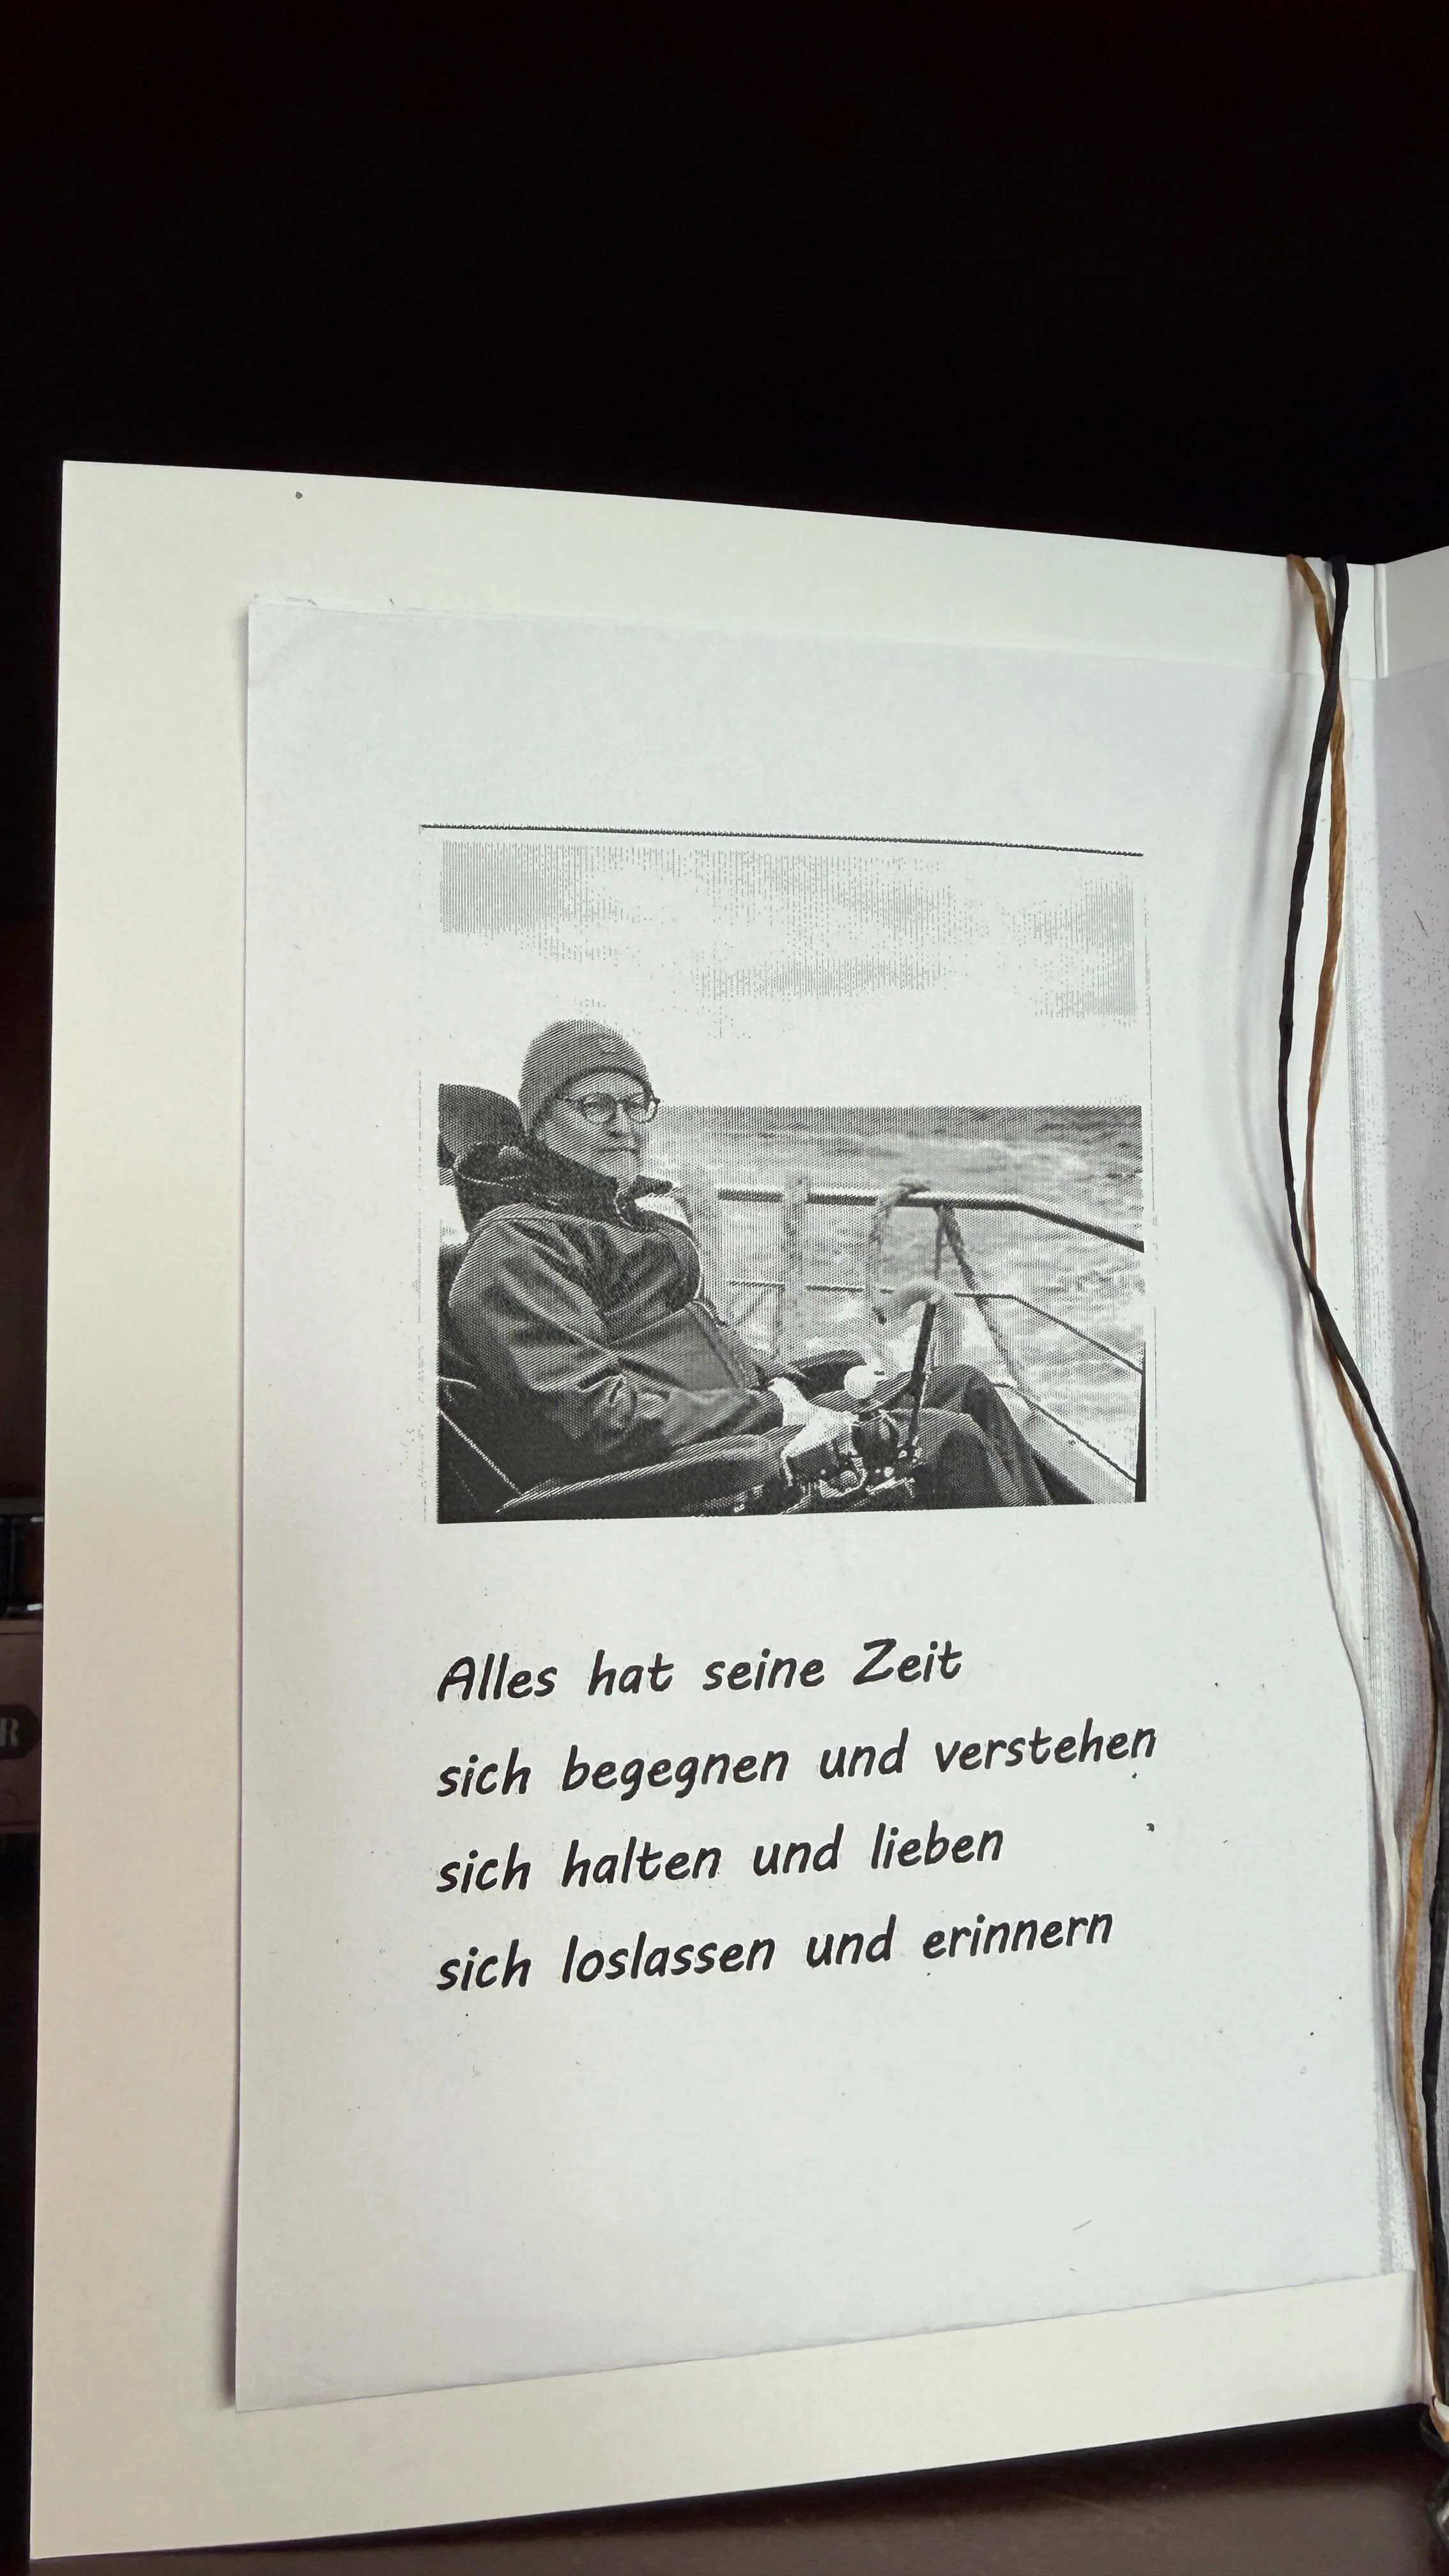 Alles hat seine Zeit
sich begegnen und verstehen
sich halten und lieben
sich loslassen und erinnern
R